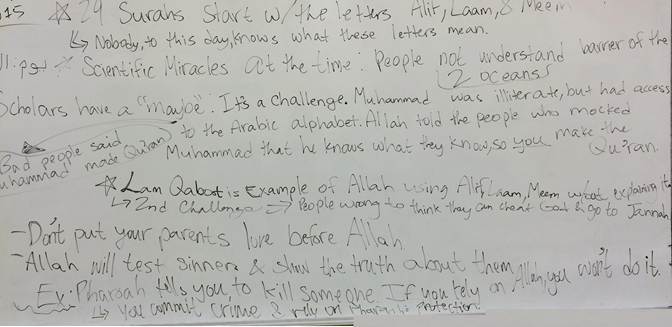 :15 ☆ 29 Surahs Start w/ the letters Alif, Laam, & Meem
↳ Nobody, to this day, knows what these letters mean.
Scientific Miracles at the time: People not understand barrier of the
2 oceans
Scholars have a "maybe". It's a challenge. Muhammad was illiterate, but had access
to the Arabic alphabet. Allah told the people who mocked
Bad people said
Muhammad made Qu'ran
Muhammad that he knows what they know, so you make the
Qu'ran.
☆ Lam is Example of Allah using Alif, Laam, Meem explaining it
↳ 2nd Challenge → People wrong to think they can cheat God & go to Jannah
- Don't put your parents love before Allah.
- Allah will test sinners & show the truth about them
Ex: Pharoah tells you, to kill someone. If you rely on Allah, you won't do it.
↳ You commit crime & rely on Pharoah's protection.